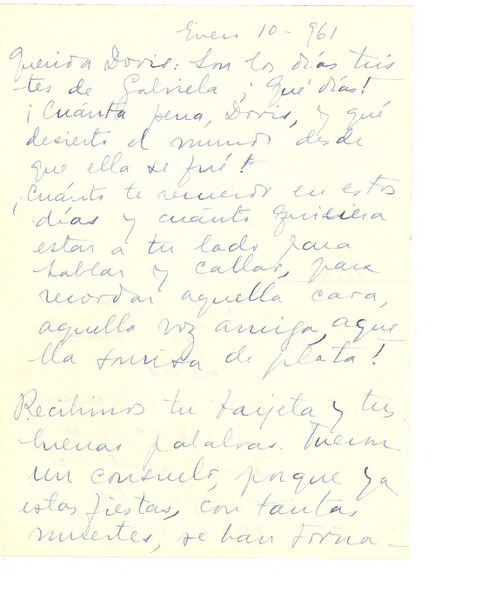 Enero 10 - 961
Querida Doris: Son los días tris
tes de Gabriela ¡Qué días!
¡Cuánta pena, Doris, y qué
desierto el mundo desde
que ella se fué!
¡Cuánto te recuerdo en estos
días y cuánto quisiera
estar a tu lado para
hablar y callar, para
recordar aquella cara,
aquella voz amiga, aque
lla sonrisa de plata!
Recibimos tu tarjeta y tus
buenas palabras. Fueron
un consuelo, porque ya
estas fiestas, con tantas
muertes, se han torna-